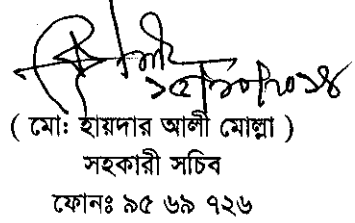 ১৫/১০/২০১৪
( মোঃ হায়দার আলী মোল্লা )
সহকারী সচিব
ফোনঃ ৯৫ ৬৯ ৭২৬